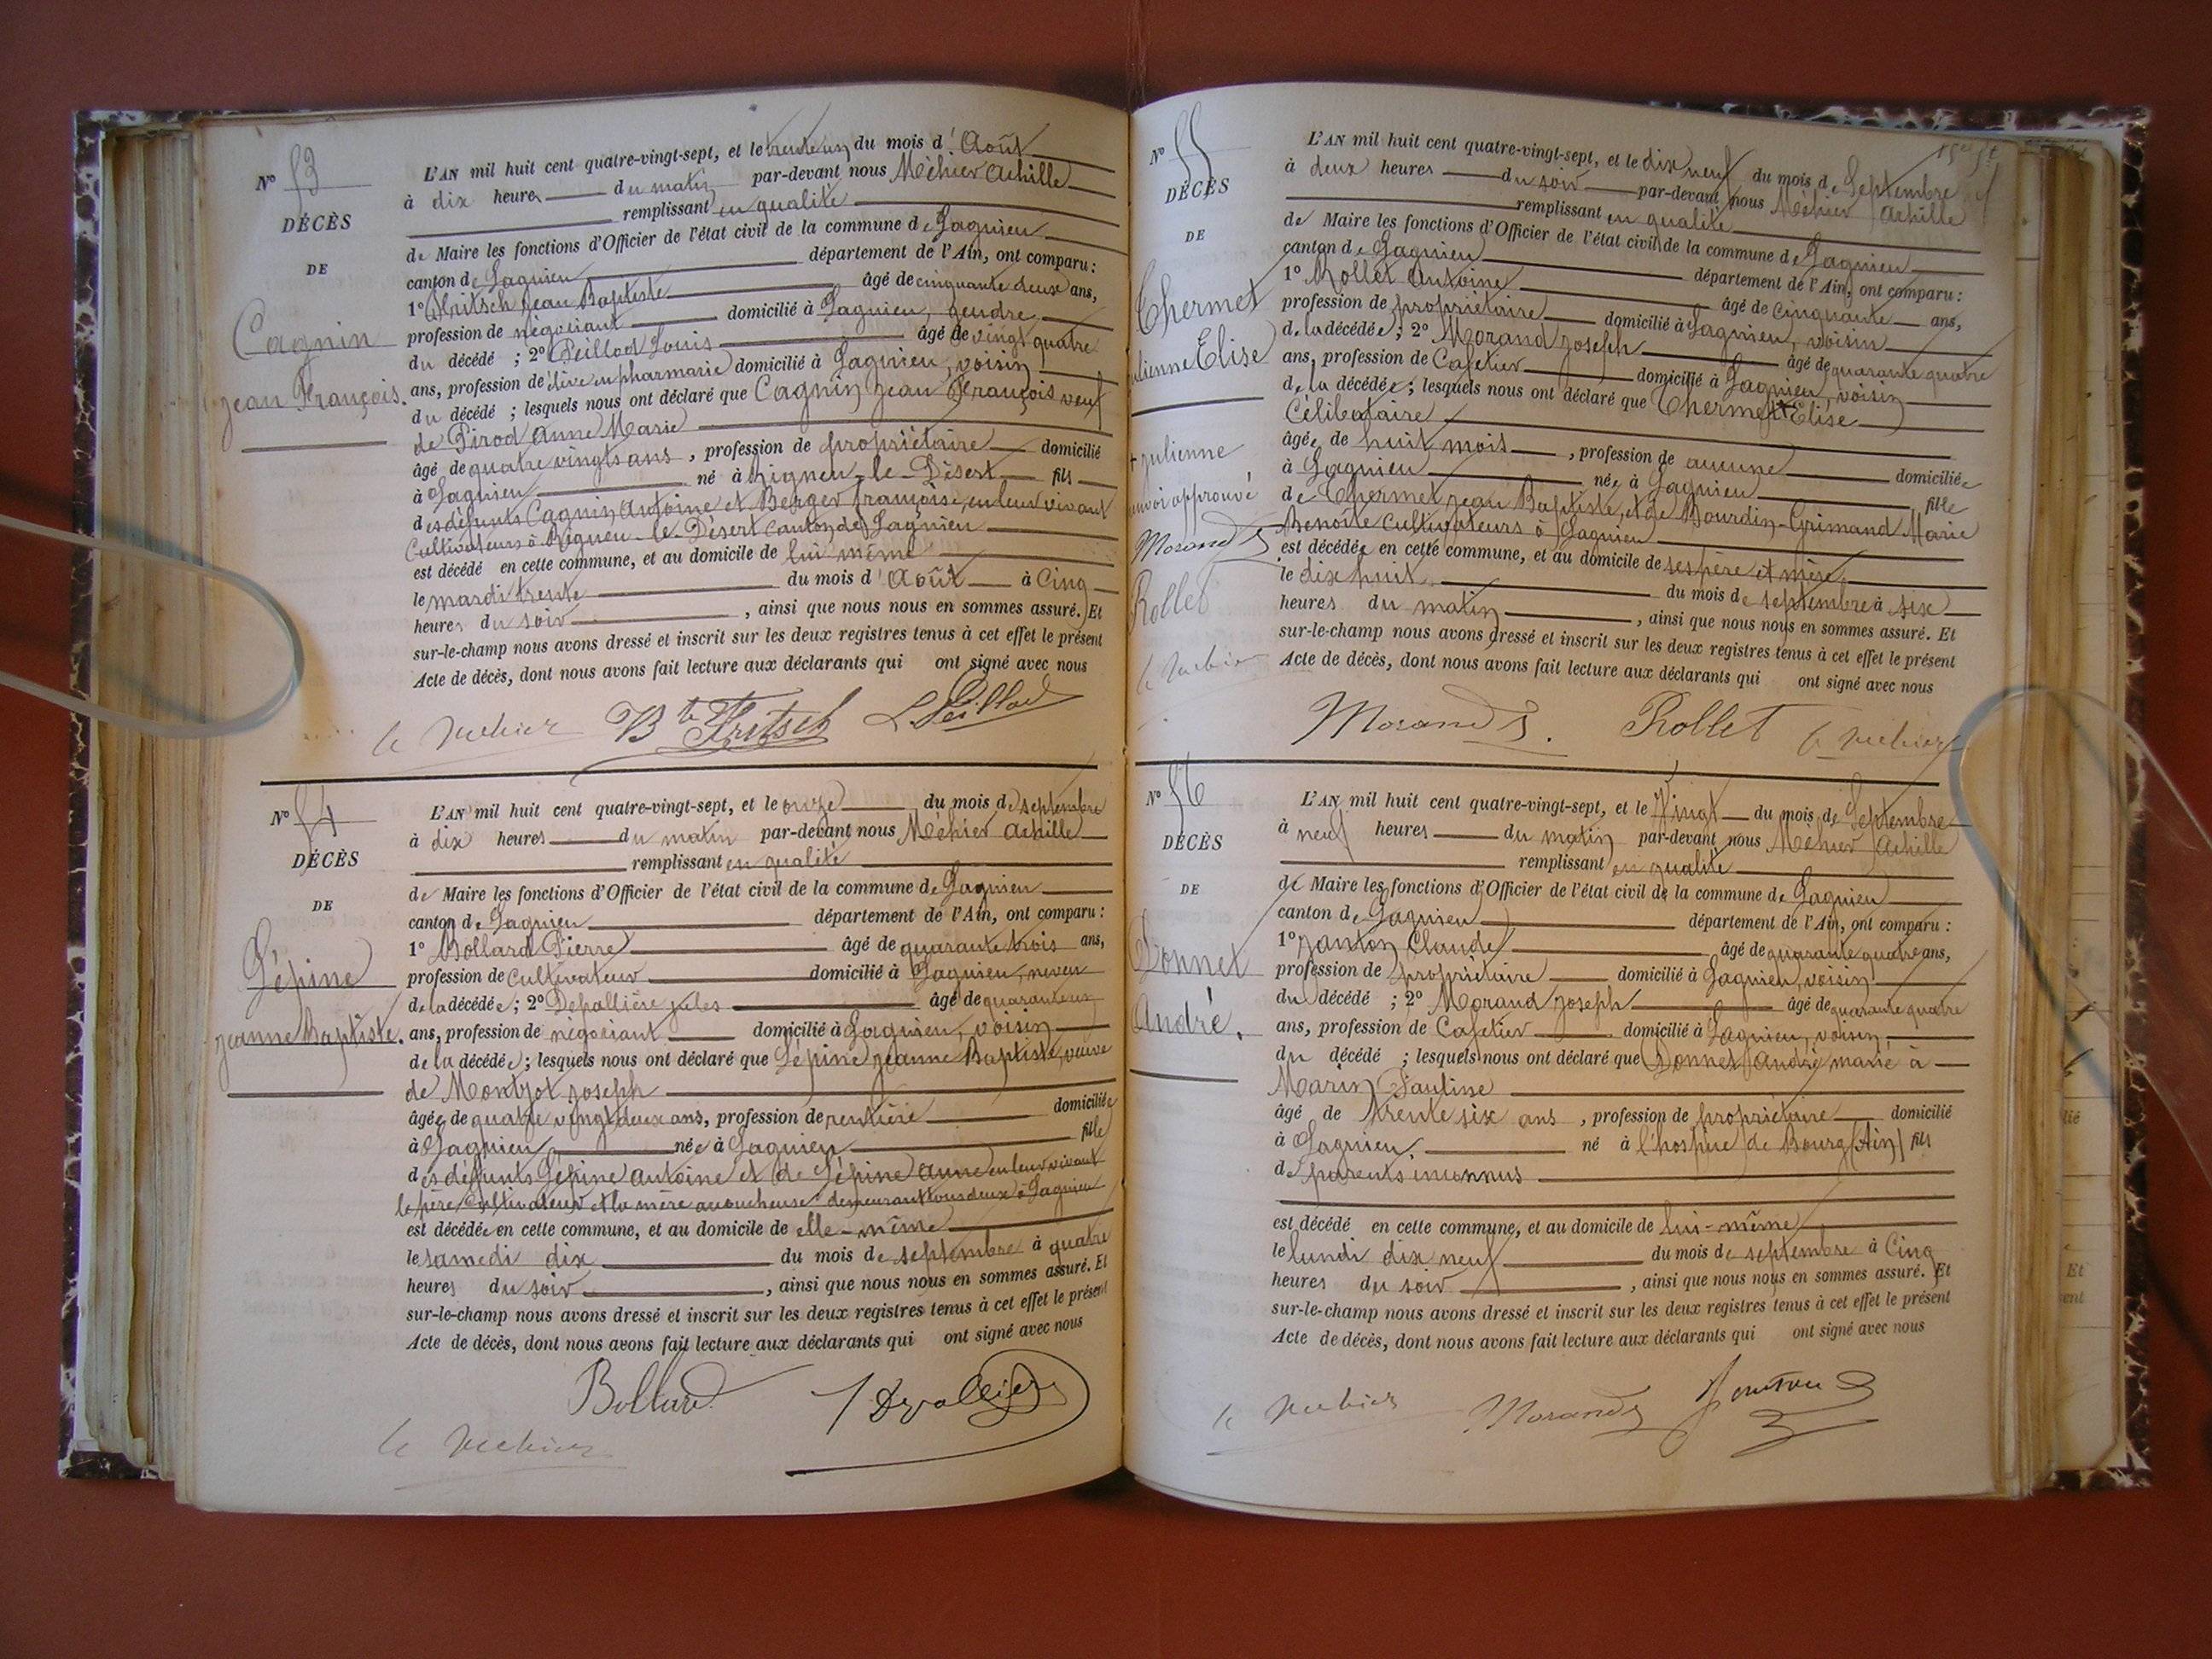 N° 53
DÉCÈS
DE
Cagnin
Jean François.
L'AN mil huit cent quatre-vingt-sept, et le trente un du mois d'Août
à dix heures du matin par-devant nous Méhier Achille
remplissant en qualité
de Maire les fonctions d'Officier de l'état civil de la commune de Lagnieu
canton de Lagnieu département de l'Ain, ont comparu :
1° Fritsch Jean Baptiste âgé de cinquante deux ans,
profession de négociant domicilié à Lagnieu, gendre
du décédé ; 2° Peillod Louis âgé de vingt quatre
ans, profession de élève en pharmarie domicilié à Lagnieu, voisin
du décédé ; lesquels nous ont déclaré que Cagnin Jean François veuf
de Pirod Anne Marie
âgé de quatre vingts ans, profession de propriétaire domicilié
à Lagnieu né à Rigneu-le-Désert fils
des défunts Cagnin Antoine et Berger Françoise, en leur vivant
Cultivateurs à Rigneu-le-Désert canton de Lagnieu
est décédé en cette commune, et au domicile de lui même
le mardi trente du mois d'Août à Cinq
heures du soir, ainsi que nous nous en sommes assuré. Et
sur-le-champ nous avons dressé et inscrit sur les deux registres tenus à cet effet le présent
Acte de décès, dont nous avons fait lecture aux déclarants qui ont signé avec nous
Bte Fritsch L Peillod
N° 54
DÉCÈS
DE
Lépine
Jeanne Baptiste.
L'AN mil huit cent quatre-vingt-sept, et le onze du mois de septembre
à dix heures du matin par-devant nous Méhier Achille
remplissant en qualité
de Maire les fonctions d'Officier de l'état civil de la commune de Lagnieu
canton de Lagnieu département de l'Ain, ont comparu :
1° Bollard Pierre âgé de quarante trois ans,
profession de Cultivateur domicilié à Lagnieu, neveu
de la décédée ; 2° Depallière Jules âgé de quarante un
ans, profession de négociant domicilié à Lagnieu, voisin
de la décédée ; lesquels nous ont déclaré que Lépine Jeanne Baptiste, veuve
de Montjot Joseph
âgée de quatre vingt deux ans, profession de rentière domiciliée
à Lagnieu née à Lagnieu fille
des défunts Lépine Antoine et de Lépine Anne en leur vivant
le père Cultivateur et la mère accoucheuse demeurant tous deux à Lagnieu
est décédée en cette commune, et au domicile de elle-même
le samedi dix du mois de septembre à quatre
heures du soir, ainsi que nous nous en sommes assuré. Et
sur-le-champ nous avons dressé et inscrit sur les deux registres tenus à cet effet le présent
Acte de décès, dont nous avons fait lecture aux déclarants qui ont signé avec nous
Bollard
N° 55
DÉCÈS
DE
Chermet
Elise
+ Julienne
approuvé
Morand J
Rollet
L'AN mil huit cent quatre-vingt-sept, et le dix neuf du mois de Septembre
à deux heures du soir par-devant nous Méhier Achille
remplissant en qualité
de Maire les fonctions d'Officier de l'état civil de la commune de Lagnieu
canton de Lagnieu département de l'Ain, ont comparu :
1° Rollet Antoine âgé de Cinquante ans,
profession de propriétaire domicilié à Lagnieu, voisin
de la décédée ; 2° Morand Joseph âgé de quarante quatre
ans, profession de Cafetier domicilié à Lagnieu, voisin
de la décédée ; lesquels nous ont déclaré que Chermet + Elise
Célibataire
âgée de huit mois, profession de aucune domiciliée
à Lagnieu née à Lagnieu fille
de Chermet Jean Baptiste, et de Bourdin-Grimand Marie
Benoîte Cultivateurs à Lagnieu
est décédée en cette commune, et au domicile de ses père et mère
le dix huit du mois de septembre à six
heures du matin, ainsi que nous nous en sommes assuré. Et
sur-le-champ nous avons dressé et inscrit sur les deux registres tenus à cet effet le présent
Acte de décès, dont nous avons fait lecture aux déclarants qui ont signé avec nous
Morand J. Rollet
N° 56
DÉCÈS
DE
Donnet
André.
L'AN mil huit cent quatre-vingt-sept, et le Vingt du mois de Septembre
à neuf heures du matin par-devant nous Méhier Achille
remplissant en qualité
de Maire les fonctions d'Officier de l'état civil de la commune de Lagnieu
canton de Lagnieu département de l'Ain, ont comparu :
1° Janton Claude âgé de quarante quatre ans,
profession de propriétaire domicilié à Lagnieu, voisin
du décédé ; 2° Morand Joseph âgé de quarante quatre
ans, profession de Cafetier domicilié à Lagnieu, voisin,
du décédé ; lesquels nous ont déclaré que Donnet André marié à
Marin Pauline
âgé de trente six ans, profession de propriétaire domicilié
à Lagnieu, né à l'hospice de Bourg (Ain) fils
de parents inconnus
est décédé en cette commune, et au domicile de lui-même
le lundi dix neuf du mois de septembre à Cinq
heures du soir, ainsi que nous nous en sommes assuré. Et
sur-le-champ nous avons dressé et inscrit sur les deux registres tenus à cet effet le présent
Acte de décès, dont nous avons fait lecture aux déclarants qui ont signé avec nous
Morand J